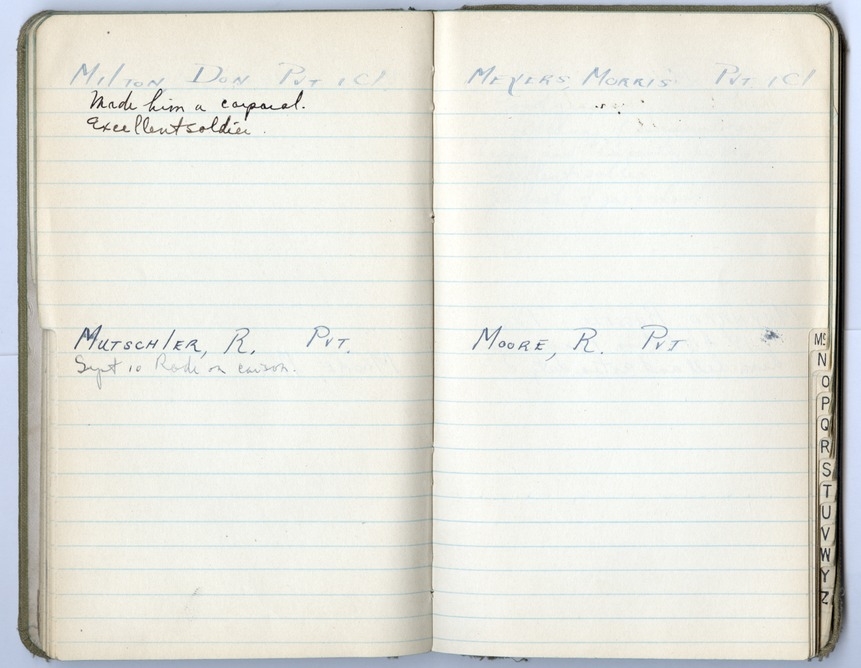 Milton Don Pvt 1Cl
Made him a corporal.
Excellent soldier.
Mutschler, R. Pvt.
Sept 10 Rode on caison.
Meyers, Morris Pvt 1Cl
Moore, R. Pvt
Mc
N
O
P
Q
R
S
T
U
V
W
Y
Z